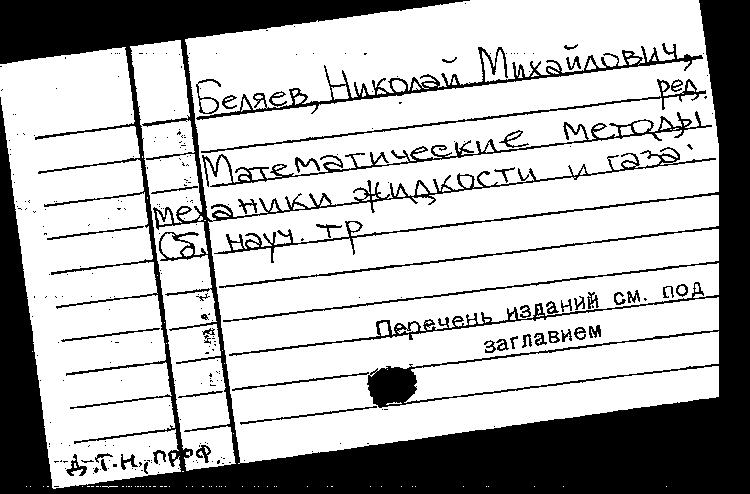 Беляев, Николай Михайлович,
ред.
Математические методы
механики жидкости и газа:
Сб. науч. тр
Перечень изданий см. под
заглавием
д.т.н., проф.